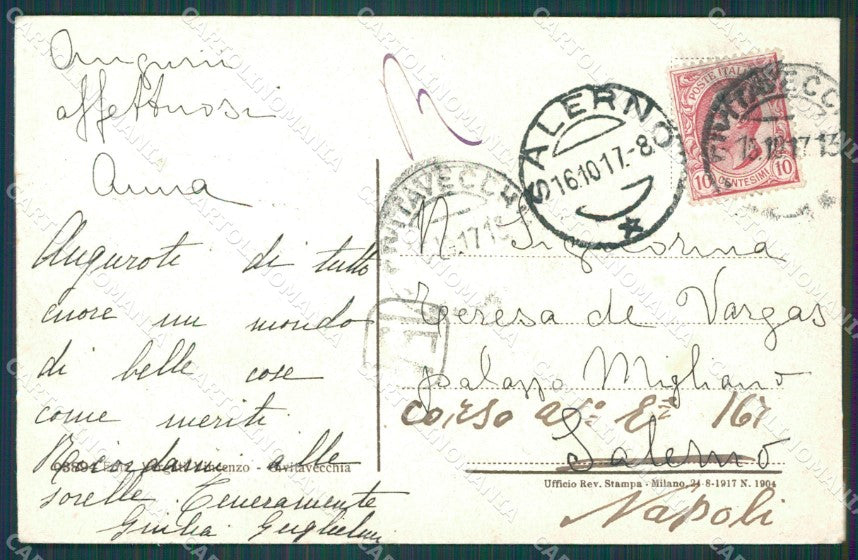 Auguri
affettuosi
Anna
Auguroti di tutto
cuore un mondo
di belle cose
come meriti.
Ricordami alle
sorelle. Teneramente
Giulia
Vincenzo - Civitavecchia
SALERNO
16.10.17-8
*
CIVITAVECCHIA
POSTE ITALIANE
10 CENTESIMI 10
CIVITAVECCH
17 13
N
Signorina
Teresa de Vargas
palazzo Migliano
corso
167
Salerno
Ufficio Rev. Stampa - Milano, 24-8-1917 N. 1904
Napoli
CARTOLINOMANIA